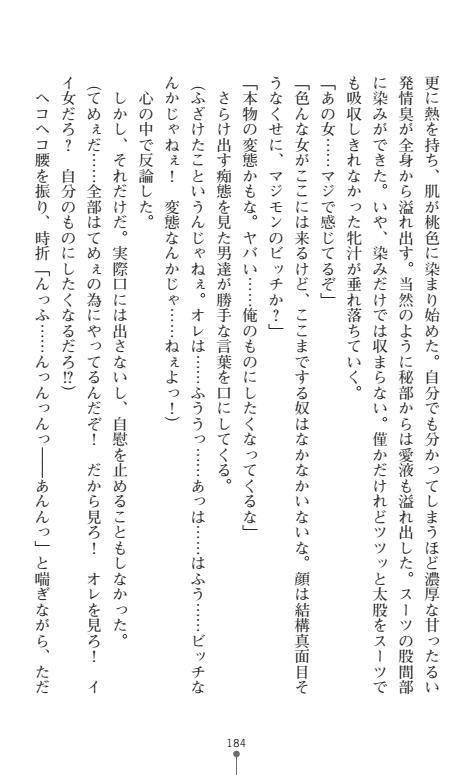 更に熱を持ち、肌が桃色に染まり始めた。自分でも分かってしまうほど濃厚な甘ったるい
発情臭が全身から溢れ出す。当然のように秘部からは愛液も溢れ出した。スーツの股間部
に染みができた。いや、染みだけでは収まらない。僅かだけれどツツッと太股をスーツで
も吸収しきれなかった牝汁が垂れ落ちていく。
「あの女……マジで感じてるぞ」
「色んな女がここには来るけど、ここまでする奴はなかなかいないな。顔は結構真面目そ
うなくせに、マジモンのビッチか?」
「本物の変態かもな。ヤバい……俺のものにしたくなってくるな」
さらけ出す痴態を見た男達が勝手な言葉を口にしてくる。
(ふざけたこというんじゃねぇ。オレは……ふううっ……あっは……はふう……ビッチな
んかじゃねぇ! 変態なんかじゃ……ねぇよっ!)
心の中で反論した。
しかし、それだけだ。実際口には出さないし、自慰を止めることもしなかった。
(てめぇだ……全部はてめぇの為にやってるんだぞ! だから見ろ! オレを見ろ! イ
イ女だろ? 自分のものにしたくなるだろ!?)
ヘコヘコ腰を振り、時折「んっふ……んっんっんっ――あんんっ」と喘ぎながら、ただ
184